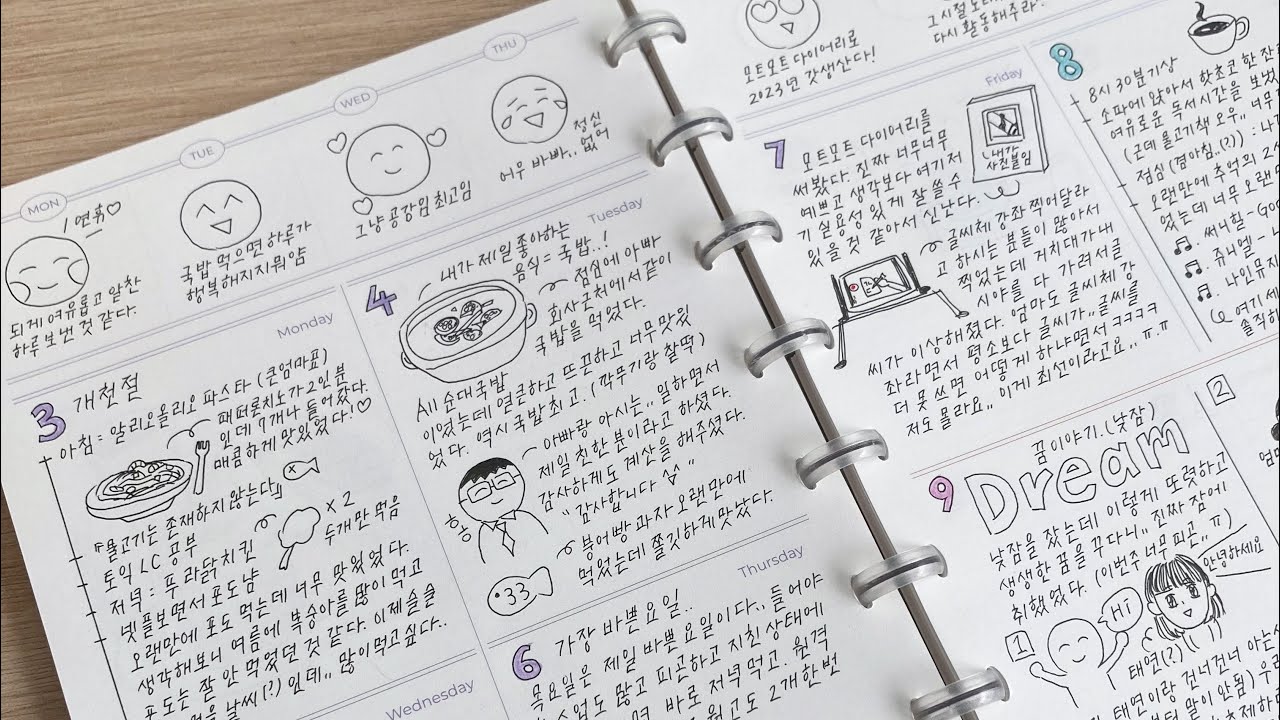 MON
TUE
WED
THU
연휴♡
되게 여유롭고 알찬
하루 보낸 것 같다.
국밥 먹으면 하루가
행복해지지뭐얌
그냥 공강임 최고임
어우 바빠..
정신
없어
Monday
3 개천절
아침 = 알리오올리오 파스타 (큰엄마표)
페퍼론치노가 2인분
인데 7개나 들어갔다.
매콤하게 맛있었다!♡
『물고기는 존재하지 않는다』
토익 LC 공부
저녁 = 푸라닭치킨
× 2
두개만 먹음
넷플보면서 포도냠
오랜만에 포도 먹는데 너무 맛있었다.
생각해보니 여름에 복숭아를 많이 먹고
포도는 잘 안 먹었던 것 같다. 이제 슬슬
날씨(?)인데.. 많이 먹고싶다..
Wednesday
Tuesday
4
내가 제일 좋아하는
음식 = 국밥..!
점심에 아빠
회사 근처에서 같이
국밥을 먹었다.
All 순대국밥
이었는데 얼큰하고 뜨끈하고 너무 맛있
었다. 역시 국밥 최고. (깍두기랑 찰떡)
아빠랑 아시는.. 일하면서
제일 친한 분이라고 하셨다.
감사하게도 계산을 해주셨다.
"감사합니다"
붕어빵 과자 오랜만에
먹었는데 쫄깃하게 맛났다.
Thursday
6 가장 바쁜 요일..
목요일은 제일 바쁜 요일이다.. 들어야
수업도 많고 피곤하고 지친 상태에
바로 저녁 먹고
2개 한번
모트모트 다이어리로
2023년 갓생산다!
다시 활동해주라.
Friday
7 모트모트 다이어리를
써봤다. 진짜 너무너무
예쁘고 생각보다 여기저
기 실용성 있게 잘 쓸 수
있을 것 같아서 신난다.
내가
사진붙임
글씨체 강좌 찍어달라
고 하시는 분들이 많아서
찍었는데 거치대가 내
시야를 다 가려서 글
씨가 이상해졌다. 엄마도 글씨체 강
좌라면서 평소보다 글씨가.. 글씨를
더 못 쓰면 어떻게 하냐면서 ㅋㅋㅋㅋ
저도 몰라요.. 이게 최선이라고요.. ㅠ.ㅠ
8
8시 30분 기상
소파에 앉아서 핫초코 한 잔
여유로운 독서시간을 보냈
오랜만에 추억의 2
었는데 너무 오랜
써니힐 - Go
쥬니엘 - 나
나인뮤지
여기 세
솔직히
9
꿈이야기. (낮잠)
Dream
낮잠을 잤는데 이렇게 또렷하고
생생한 꿈을 꾸다니.. 진짜 잠에
취했었다. (이번주 너무 피곤.. ㅠ)
1
Hi
안녕하세요
2